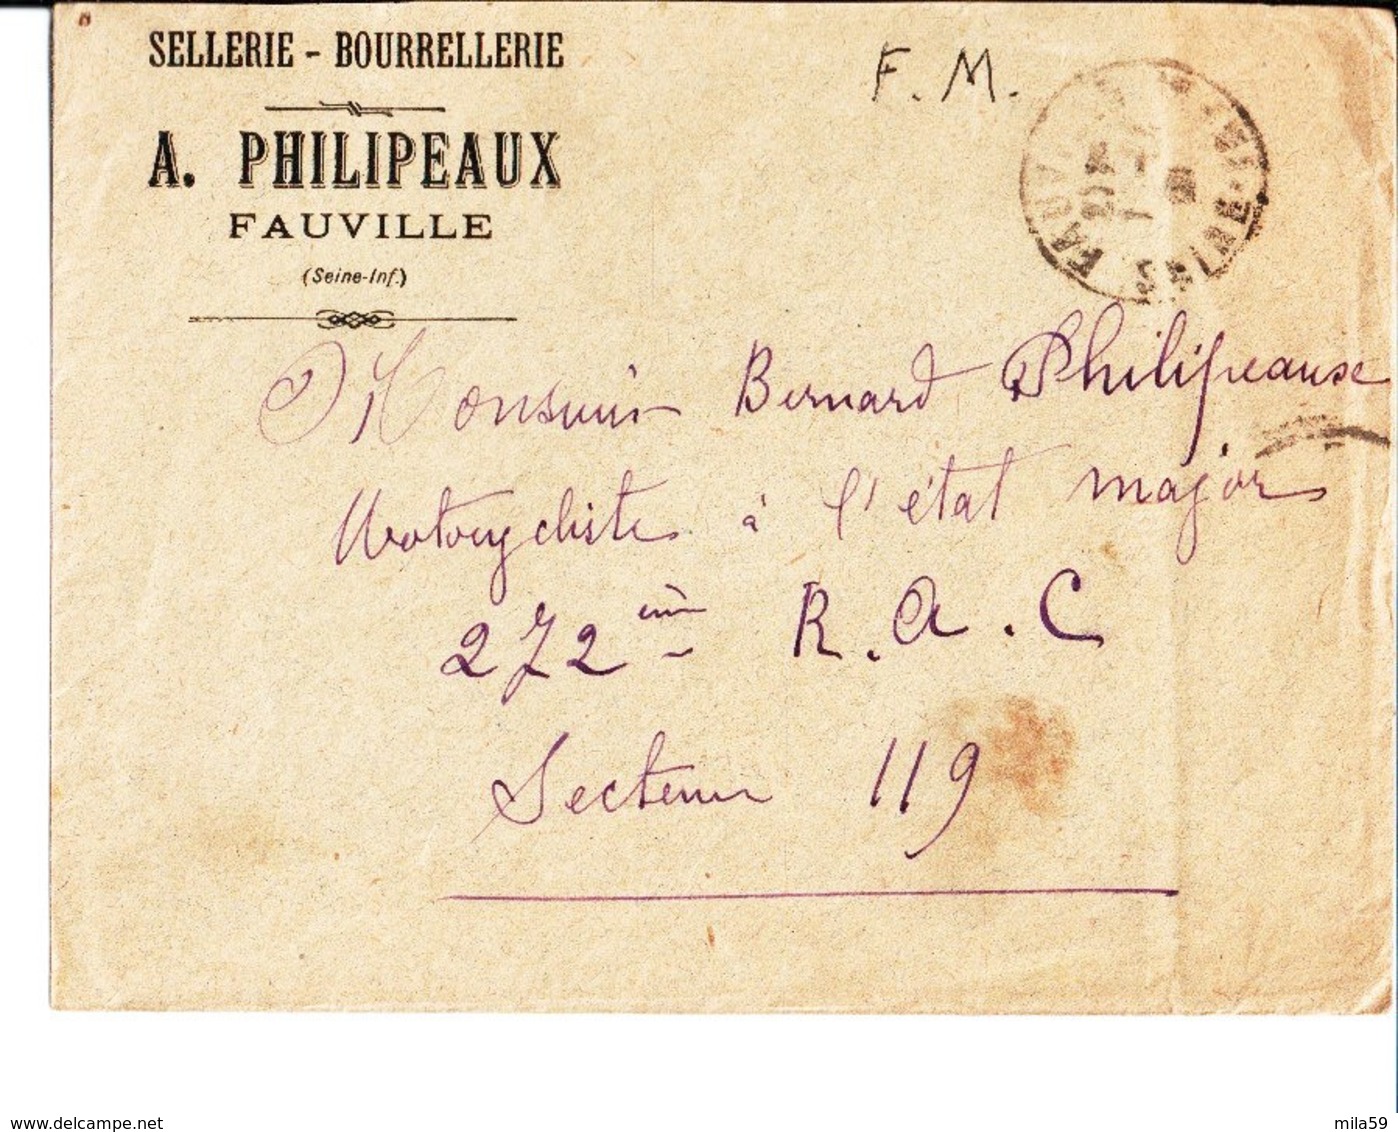 SELLERIE - BOURRELLERIE
A. PHILIPEAUX
FAUVILLE
(Seine-Inf.)
F. M.
FAUV
SEINE-INF
Monsieur Bernard Philipeaux
Motocycliste à l'état major
272ème R.A.C
Secteur 119
www.delcampe.net
mila59